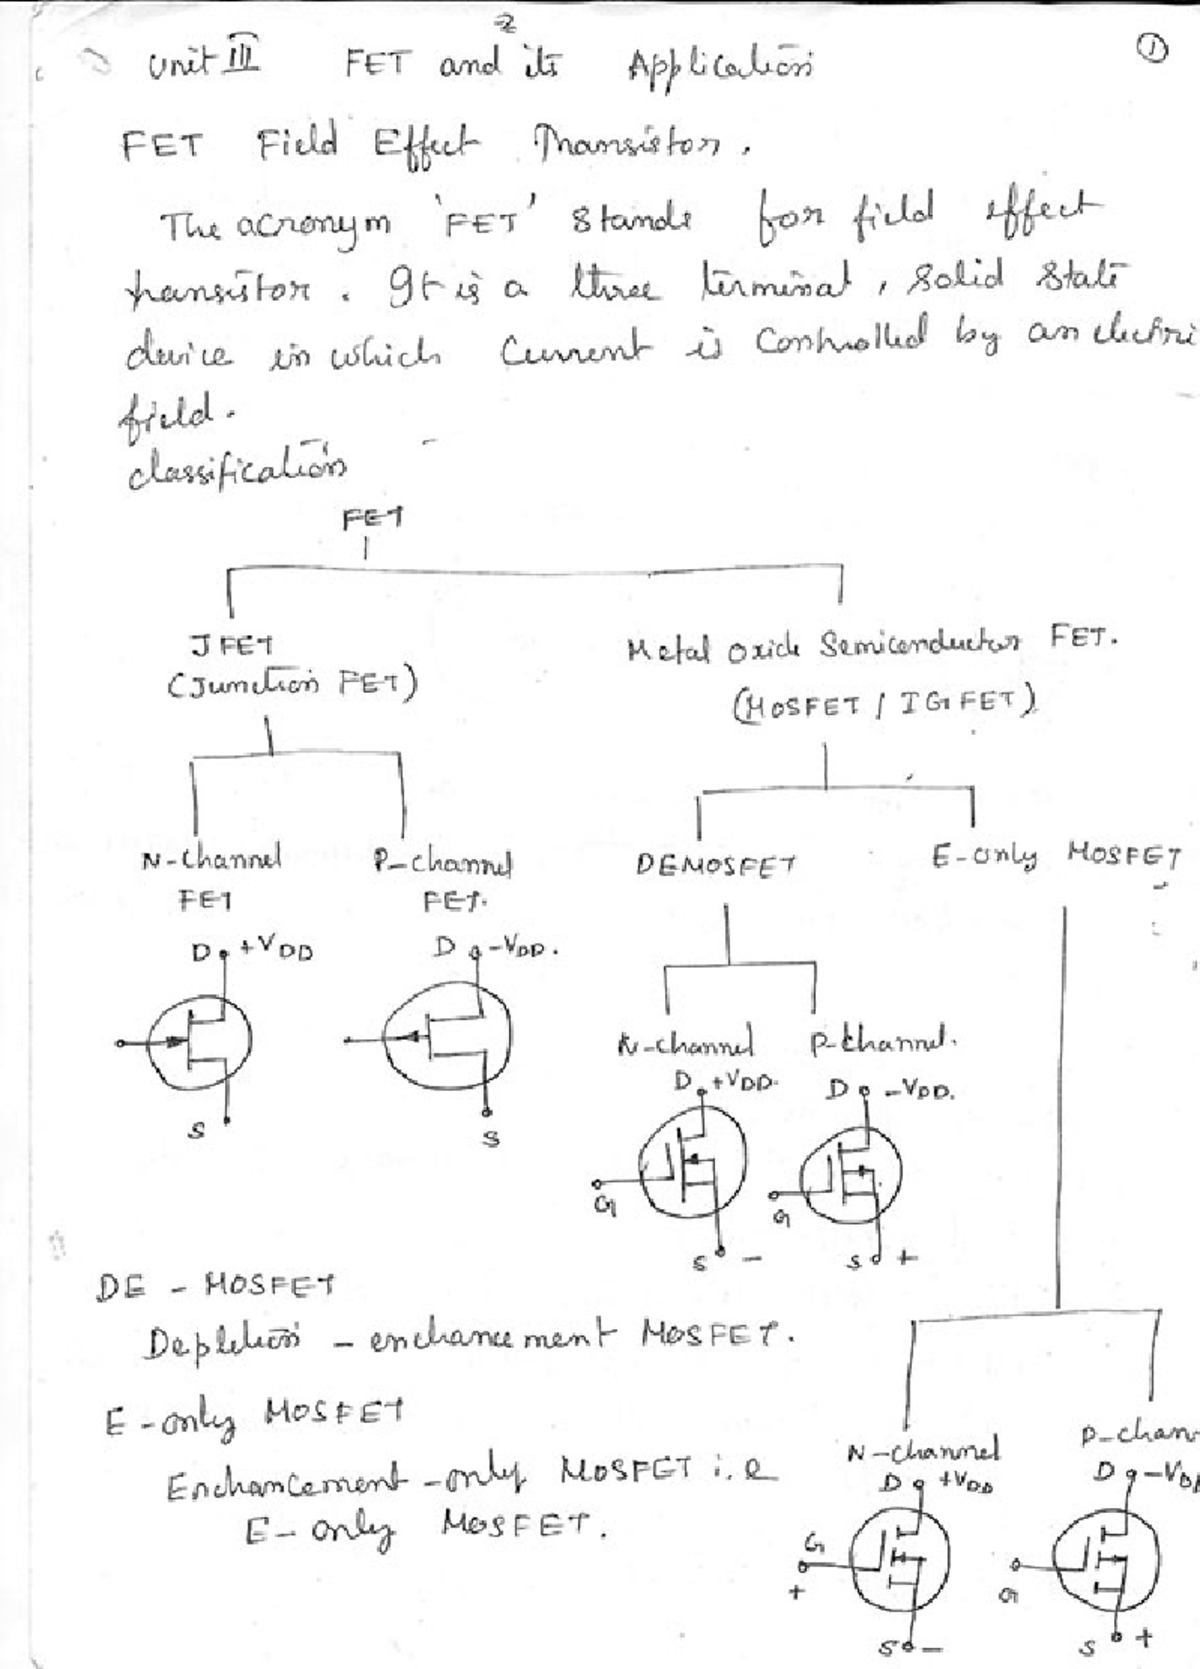 2
Unit III FET and its Application
1
FET Field Effect Transistor.
The acronym 'FET' stands for field effect
transistor. It is a three terminal, solid state
device in which current is controlled by an electri
field.
classification
FET
JFET
(Junction FET)
Metal oxide Semiconductor FET.
(MOSFET / IGFET)
N-channel
FET
P-channel
FET.
DEMOSFET
E-only MOSFET
D +VDD
S
D -VDD.
S
N-channel
D +VDD.
G
S -
P-channel.
D -VDD.
G
S +
DE - MOSFET
Depletion - enchancement MOSFET.
E-only MOSFET
Enchancement-only MOSFET i.e
E-only MOSFET.
N-channel
D +VDD
G
+
S -
P-chan
D -VDD
G
S +